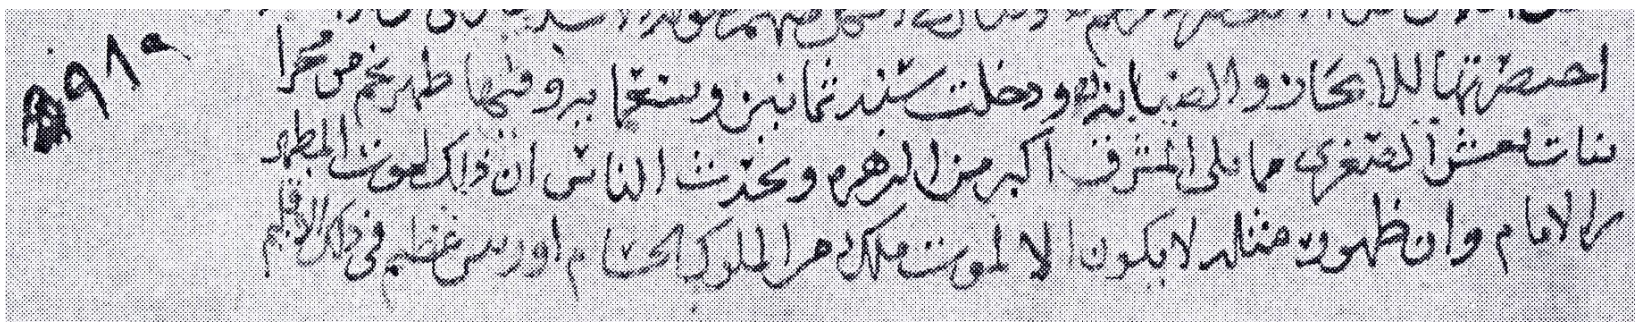 ٩٨٠
اختصرتها للايجاز والصيانه ودخلت سنة ثمانين وتسعماية وفيها ظهر نجم من مجرا
بنات نعش الصغرى مما يلى المشرق اكبر من الزهره وتحدث الناس ان ذلك لموت المطهر
بن الامام وان ظهور مثله لا يكون الا لموت ملك من الملوك او رئيس عظيم في ذلك الاقليم